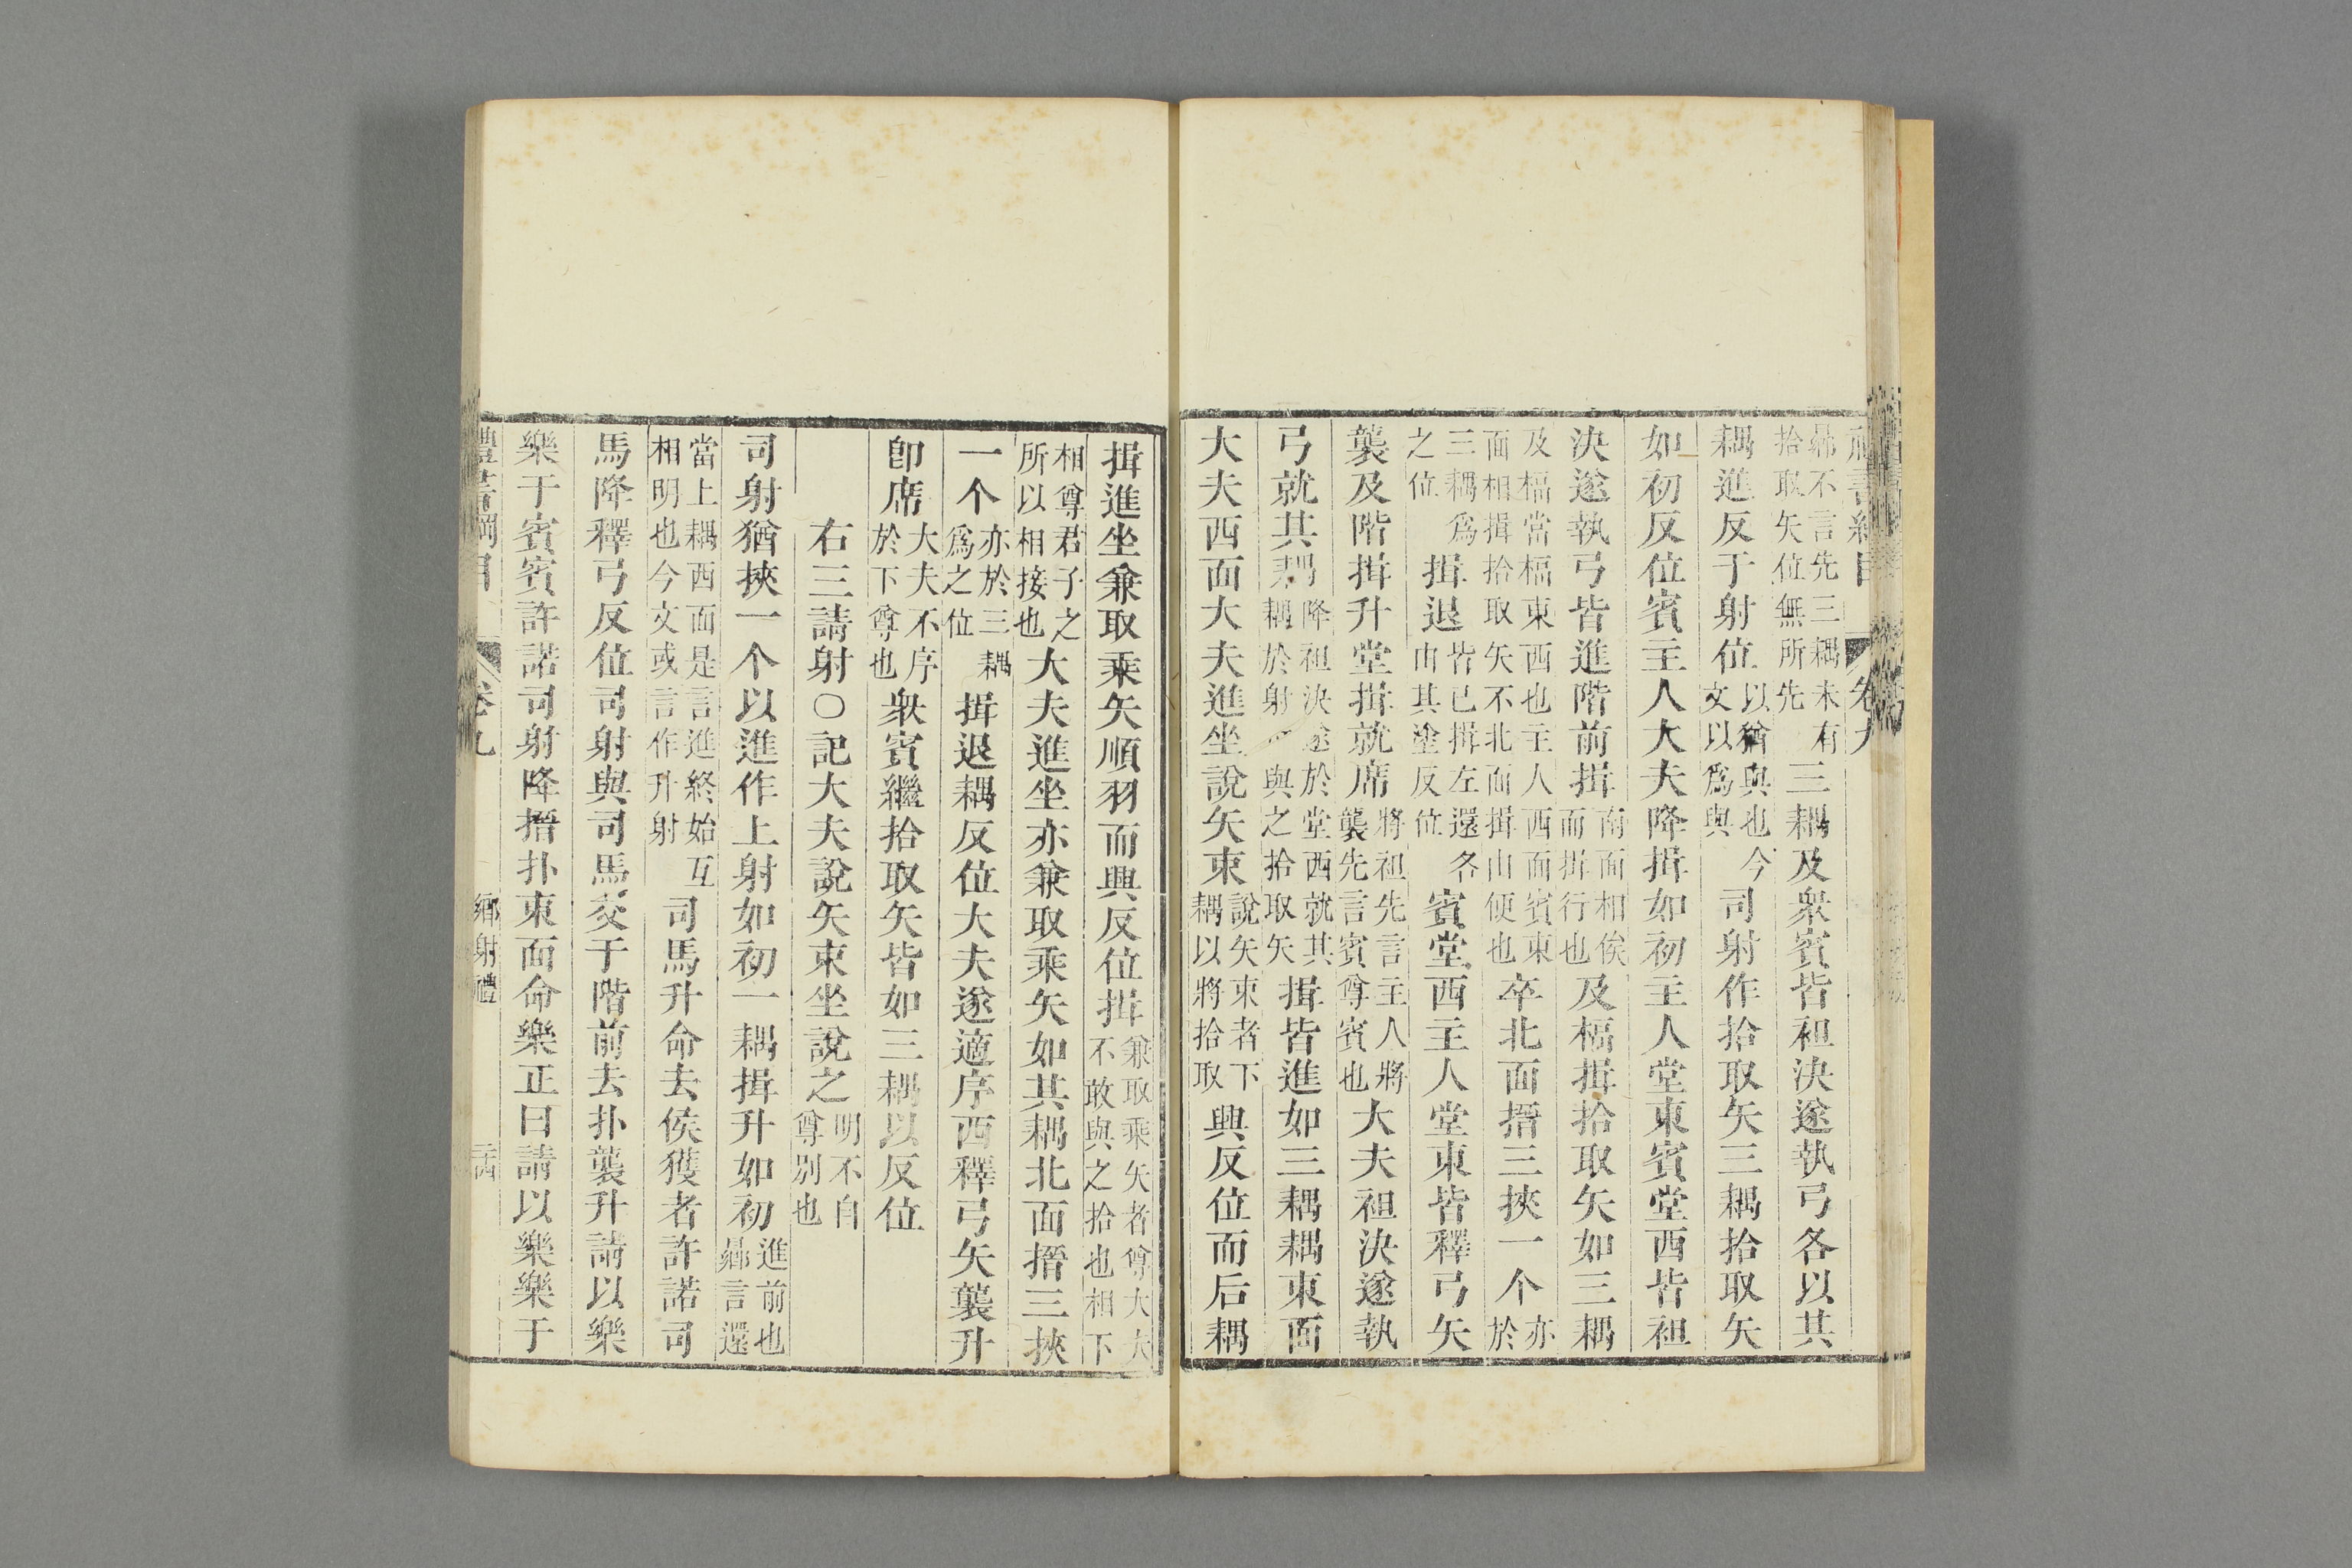 曏不言先三耦未有
拾取矢位無所先
三耦及衆賓皆袒決遂執弓各以其
耦進反于射位
以猶與也今
文以爲與
司射作拾取矢三耦拾取矢
如初反位賓主人大夫降揖如初主人堂東賓堂西皆袒
決遂執弓皆進階前揖
南面相俟
而揖行也
及楅揖拾取矢如三耦
及楅當楅東西也主人西面賓東
面相揖拾取矢不北面揖由便也
卒北面搢三挾一个
亦於
三耦爲
之位
揖退
皆已揖左還各
由其塗反位
賓堂西主人堂東皆釋弓矢
襲及階揖升堂揖就席
將袒先言主人將
襲先言賓尊賓也
大夫袒決遂執
弓就其耦
降袒決遂於堂西就其
耦於射 與之拾取矢
揖皆進如三耦耦東面
大夫西面大夫進坐說矢束
說矢束者下
耦以將拾取
興反位而后耦
揖進坐兼取乘矢順羽而興反位揖
兼取乘矢者尊大夫
不敢與之拾也相下
相尊君子之
所以相接也
大夫進坐亦兼取乘矢如其耦北面搢三挾
一个
亦於三耦
爲之位
揖退耦反位大夫遂適序西釋弓矢襲升
卽席
大夫不序
於下尊也
衆賓繼拾取矢皆如三耦以反位
右三請射○記大夫說矢束坐說之
明不自
尊別也
司射猶挾一个以進作上射如初一耦揖升如初
進前也
曏言還
當上耦西面是言進終始互
相明也今文或言作升射
司馬升命去侯獲者許諾司
馬降釋弓反位司射與司馬交于階前去扑襲升請以樂
樂于賓賓許諾司射降搢扑東面命樂正曰請以樂樂于
禮書綱目
卷九
鄉射禮